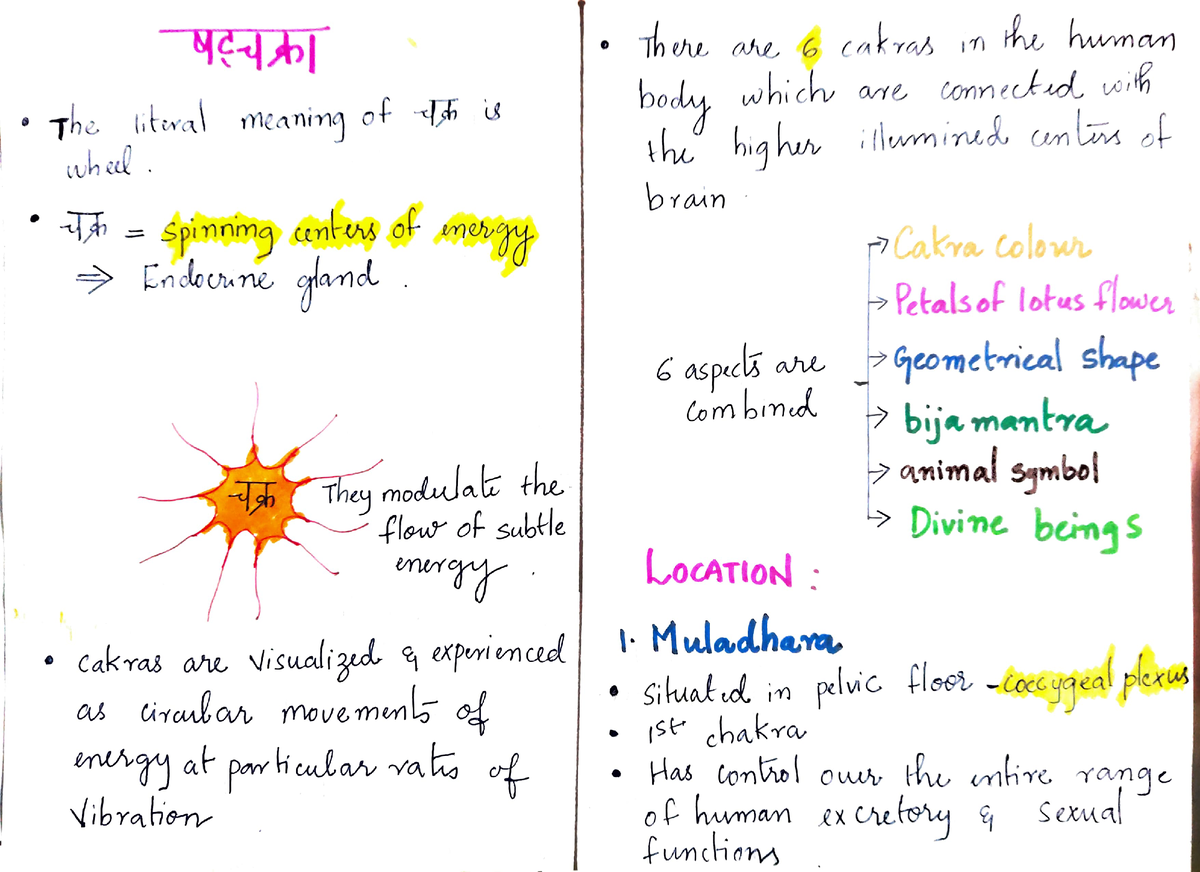 षट्चक्रा
• The literal meaning of चक्र is
wheel.
• चक्र = spinning centers of energy
⇒ Endocrine gland.
चक्र
They modulate the
flow of subtle
energy.
• cakras are visualized & experienced
as circular movements of
energy at particular rates of
vibration
• There are 6 cakras in the human
body which are connected with
the higher illumined centers of
brain
6 aspects are
combined
→ Cakra colour
→ Petals of lotus flower
→ Geometrical shape
→ bija mantra
→ animal symbol
→ Divine beings
LOCATION :
1. Muladhara
• situated in pelvic floor - coccygeal plexus
• 1st chakra
• Has control over the entire range
of human excretory & sexual
functions.